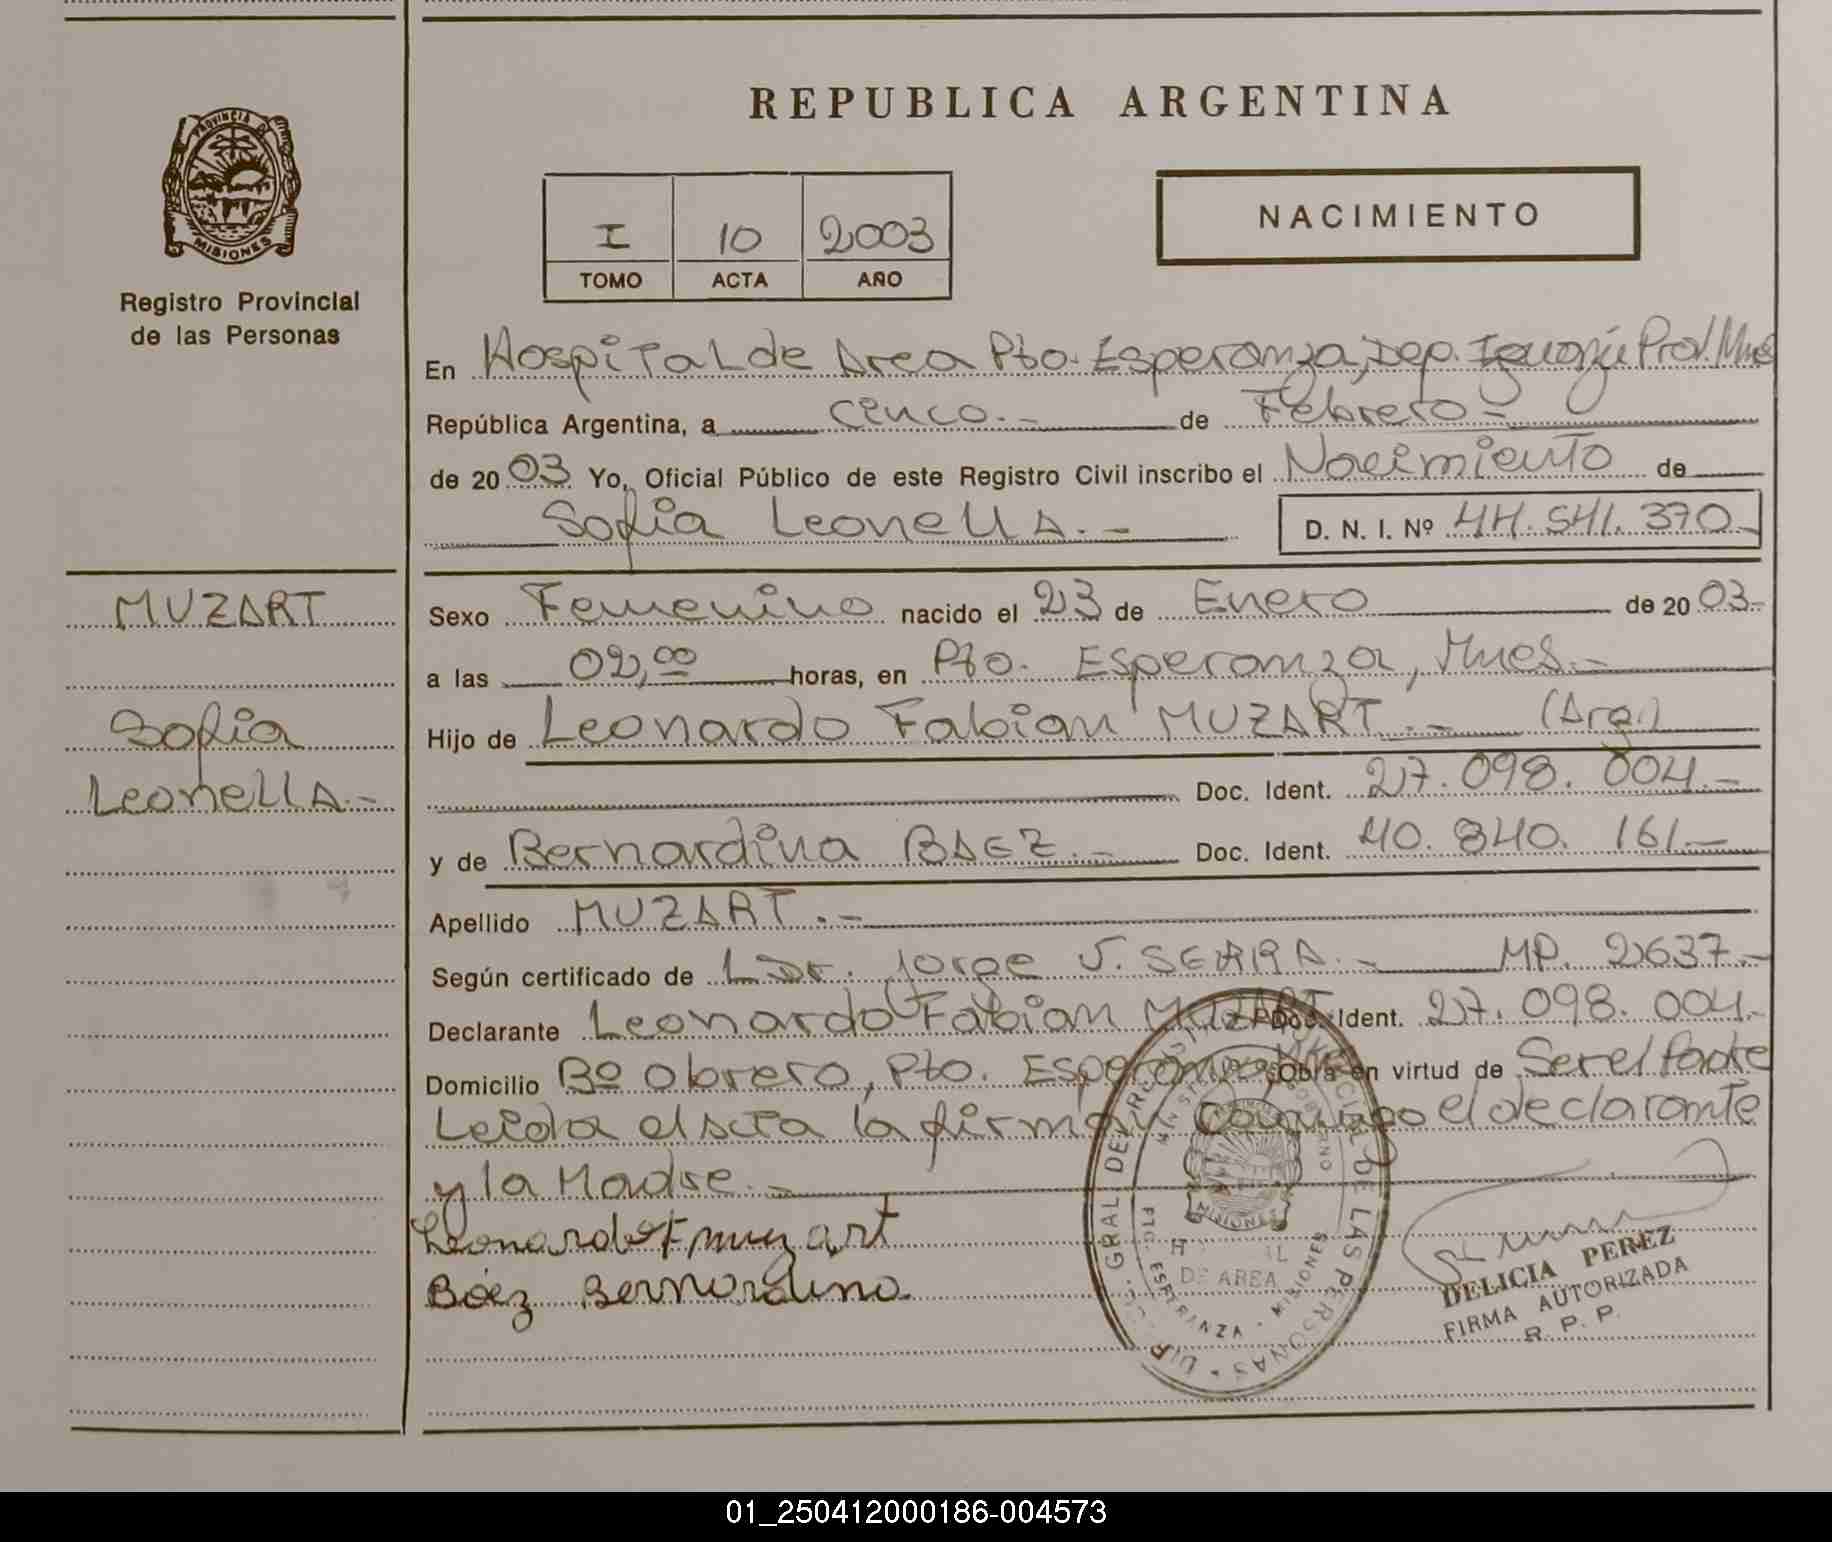 REPUBLICA ARGENTINA
PROVINCIA DE
MISIONES
Registro Provincial
de las Personas
I 10 2003
TOMO ACTA AÑO
NACIMIENTO
En Hospital de Area Pto. Esperanza, Dep. Iguazú Prov. Mnes
República Argentina, a cinco.- de Febrero-
de 2003 Yo, Oficial Público de este Registro Civil inscribo el Nacimiento de
Sofia Leonella.- D. N. I. Nº 44.541.370-
MUZART
Sofia
Leonella.-
Sexo Femenino nacido el 23 de Enero de 2003-
a las 02,00 horas, en Pto. Esperanza, Mnes.-
Hijo de Leonardo Fabian MUZART.- (Arg.)
Doc. Ident. 27.098.004.-
y de Bernardina BAEZ.- Doc. Ident. 40.840.161.-
Apellido MUZART.-
Según certificado de Dr. Jorge J. SERRA.- MP. 2637.-
Declarante Leonardo Fabian MUZART Doc. Ident. 27.098.004.-
Domicilio Bº Obrero, Pto. Esperanza, Obra en virtud de Ser el Padre
Leida el acta la firman conmigo el declarante
y la Madre.-
Leonardo F muzart
Báez Bernardina
GRAL DE REGISTRO PROVINCIAL DE LAS PERSONAS
GOBIERNO
MISIONES
DE AREA
PTO. ESPERANZA - MISIONES
DELICIA PEREZ
FIRMA AUTORIZADA
R. P. P.
01_250412000186-004573